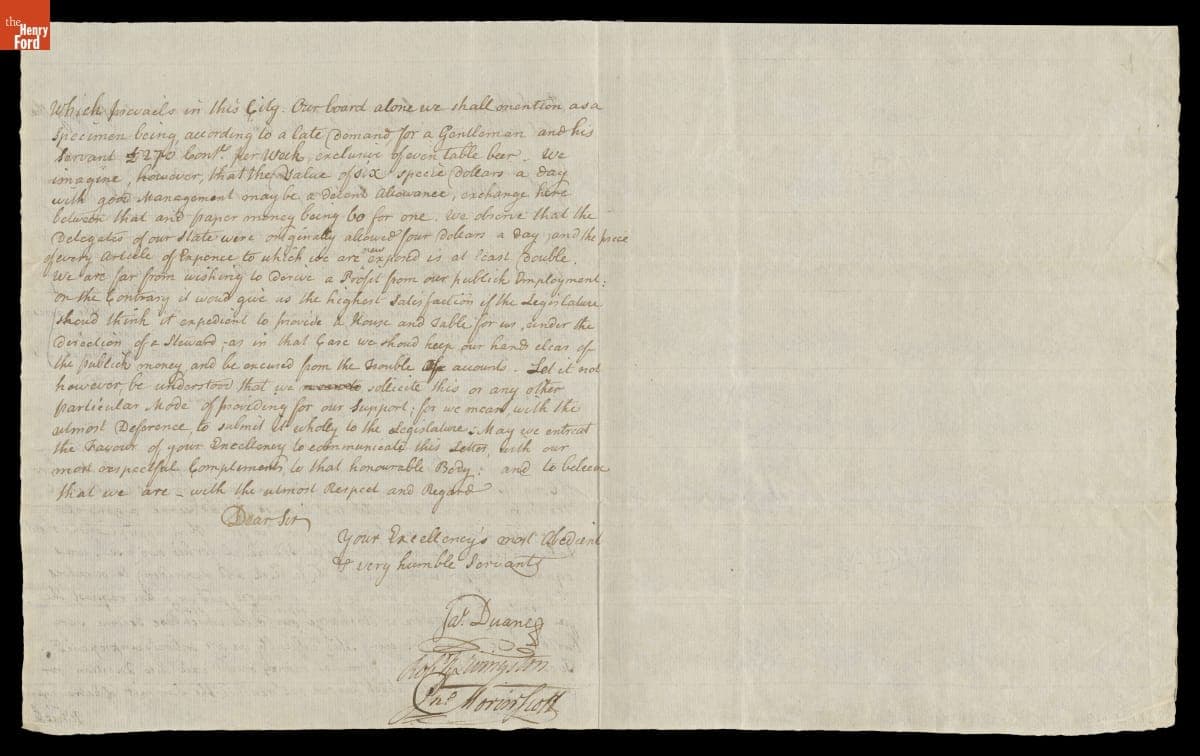 the
Henry
Ford
Which prevails in this City. Our board alone we shall mention as a
specimen being according to a late Demand for a Gentleman and his
Servant £270 Contl. per Week, exclusive of even table beer. We
imagine, however, that the Value of six specie Dollars a day
with good Management may be a decent Allowance, exchange here
between that and paper money being 60 for one. We observe that the
Delegates of our State were originally allowed four Dollars a Day, and the price
of every Article of Expence to which we are now exposed is at least double.
We are far from wishing to derive a Profit from our publick Employment:
on the Contrary it woud give us the highest Satisfaction if the Legislature
shoud think it expedient to provide a House and Table for us, under the
Direction of a Steward, as in that Case we shoud keep our hands clear of
the publick money and be excused from the Trouble of accounts. Let it not
however, be understood that we sollicite this or any other
particular Mode of providing for our Support: for we mean, with the
utmost Deference, to submit it wholly to the Legislature. May we entreat
the Favour of your Excellency to communicate this Letter, with our
most respectful Compliments, to that honourable Body: and to beleive
that we are - with the utmost Respect and Regard
Dear Sir
Your Excellency's most Obedient
& very humble Servants
Jas. Duane
Robt R Livingston
Jno Morin Scott